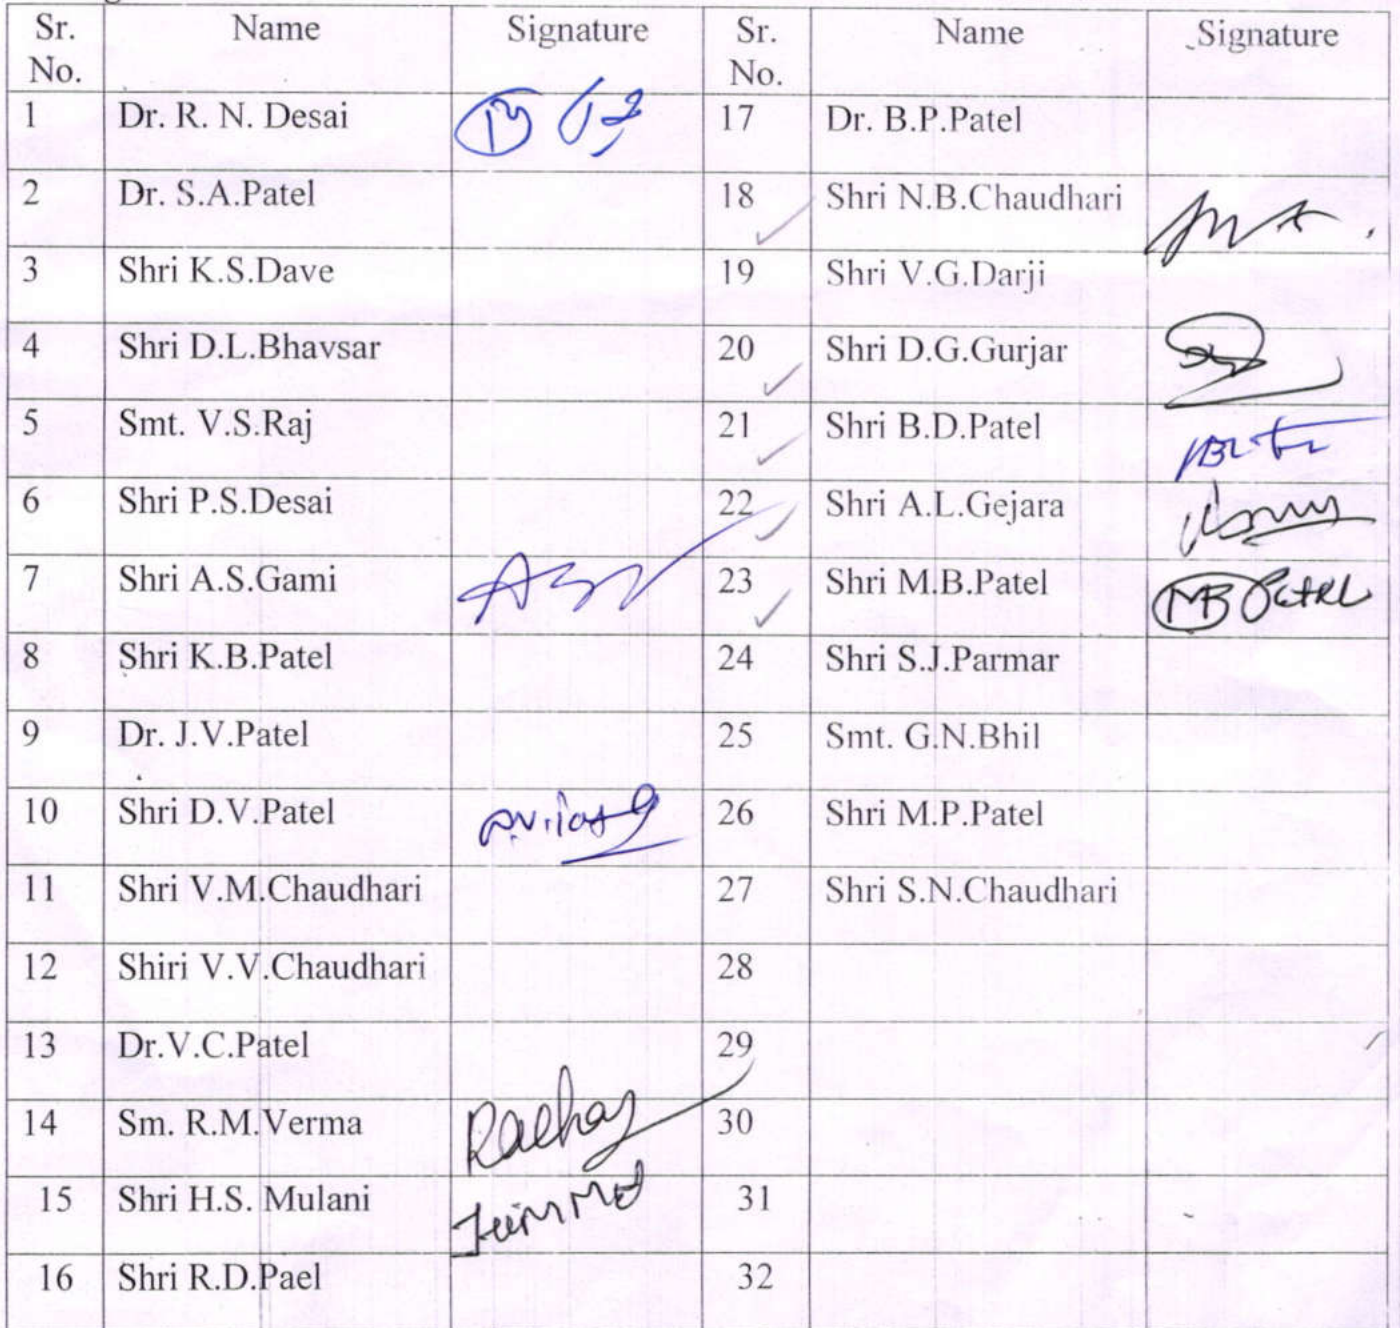 Sr. No. Name Signature Sr. No. Name Signature
1 Dr. R. N. Desai 17 Dr. B.P.Patel
2 Dr. S.A.Patel 18 Shri N.B.Chaudhari
3 Shri K.S.Dave 19 Shri V.G.Darji
4 Shri D.L.Bhavsar 20 Shri D.G.Gurjar
5 Smt. V.S.Raj 21 Shri B.D.Patel
6 Shri P.S.Desai 22 Shri A.L.Gejara
7 Shri A.S.Gami 23 Shri M.B.Patel MB Patel
8 Shri K.B.Patel 24 Shri S.J.Parmar
9 Dr. J.V.Patel 25 Smt. G.N.Bhil
10 Shri D.V.Patel 26 Shri M.P.Patel
11 Shri V.M.Chaudhari 27 Shri S.N.Chaudhari
12 Shiri V.V.Chaudhari 28
13 Dr.V.C.Patel 29
14 Sm. R.M.Verma 30
15 Shri H.S. Mulani 31
16 Shri R.D.Pael 32